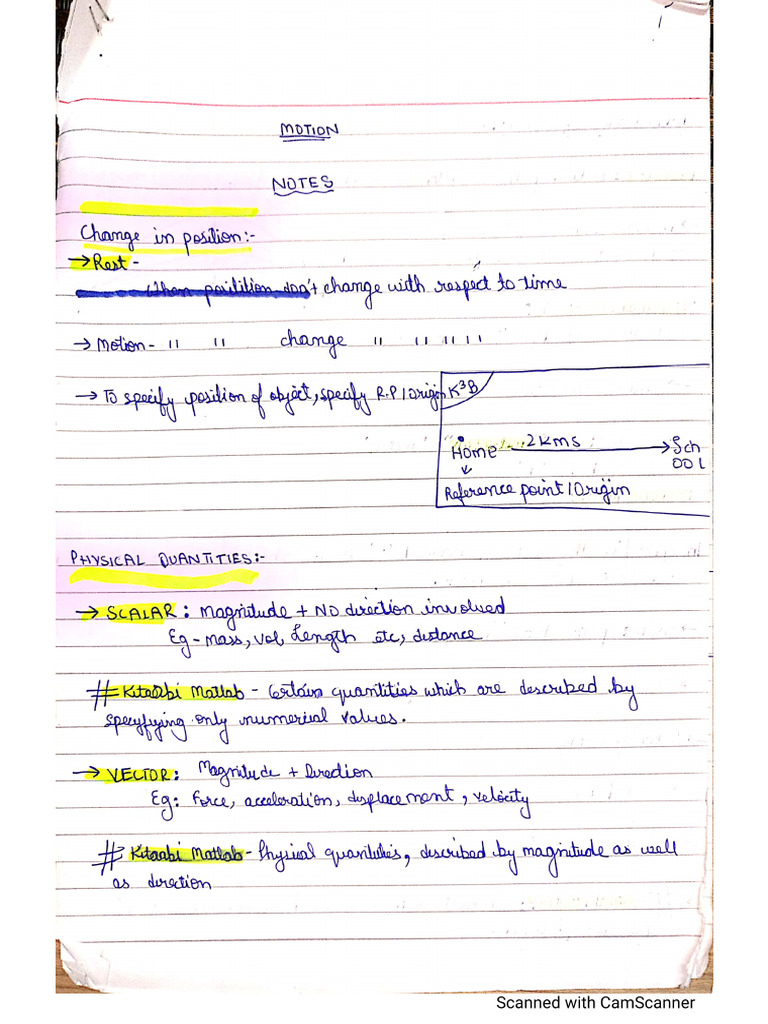 MOTION
NOTES
Change in position:-
→ Rest -
When position don't change with respect to time
→ Motion - " " change " " " "
→ To specify position of object, specify R.P / Origin
K³B
Home 2 kms → Sch
ool
Reference point / Origin
PHYSICAL QUANTITIES:-
→ SCALAR: Magnitude + NO direction involved
Eg - mass, vol, Length etc, distance
# Kitaabi Matlab - Certain quantities which are described by
specyfying only numerical values.
→ VECTOR: Magnitude + Direction
Eg: Force, acceleration, displacement, velocity
# Kitaabi Matlab - Physical quantities, described by magnitude as well
as direction
Scanned with CamScanner